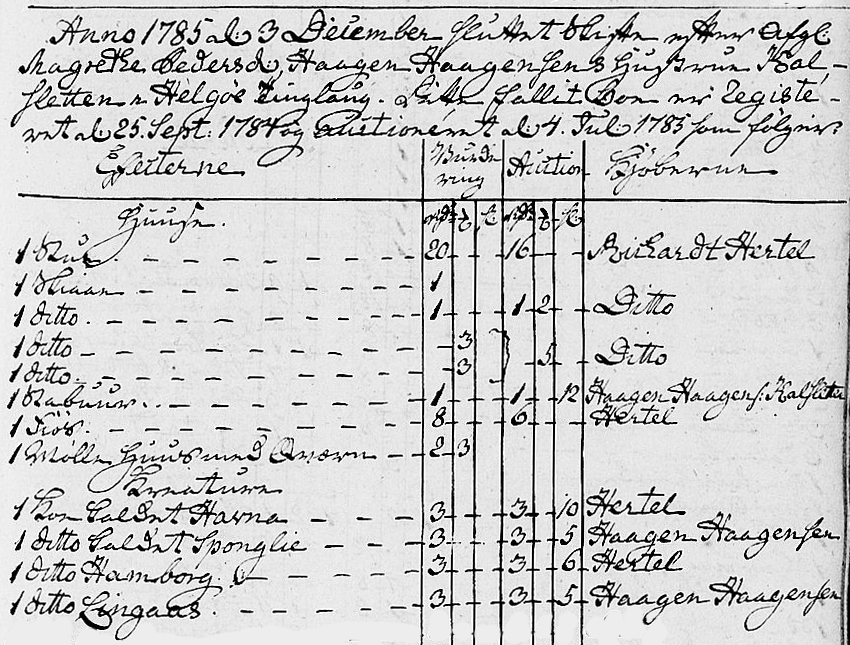 Anno 1785 d: 3 December sluttet Skifte efter Afgl:
Magrethe Pedersd:, Haagen Haagensens Hustrue Kal-
sletten i Helgøe Tinglaug. Dette Fallit Boe er Registe-
ret d 25. Sept: 1784 og Auctioneret d: 4. Jul: 1785 som følger:
Effecterne Vurde Auction Kjøberne
ring
Huuse. rdr ƀ s. rdr ƀ s.
1 Stue. - - - - - - - - - - 20 - - 16 - - Richardt Hertel
1 Skiaae - - - - - - - - - 1
1 ditto. - - - - - - - - - - 1 - - 1 2 - Ditto
1 ditto - - - - - - - - - - - 3
- 5 - Ditto
1 ditto. - - - - - - - - - - - 3
1 Stabuur. - - - - - - - - 1 - - 1 - 12 Haagen Haagens: Kalsletten
1 Fiøs. - - - - - - - - - - 8 - - 6 - - Hertel
1 Mølle Huus med Qværn - - 2 3
Kreature
1 Koe kaldet Havna - - - - 3 - - 3 - 10 Hertel
1 ditto kaldet Sponglie - - - - 3 - - 3 - 5 Haagen Haagensen
1 ditto Hamborg. - - - - - - 3 - - 3 - 6 Hertel
1 ditto Lingaas. - - - - - - 3 - - 3 - 5 Haagen Haagensen